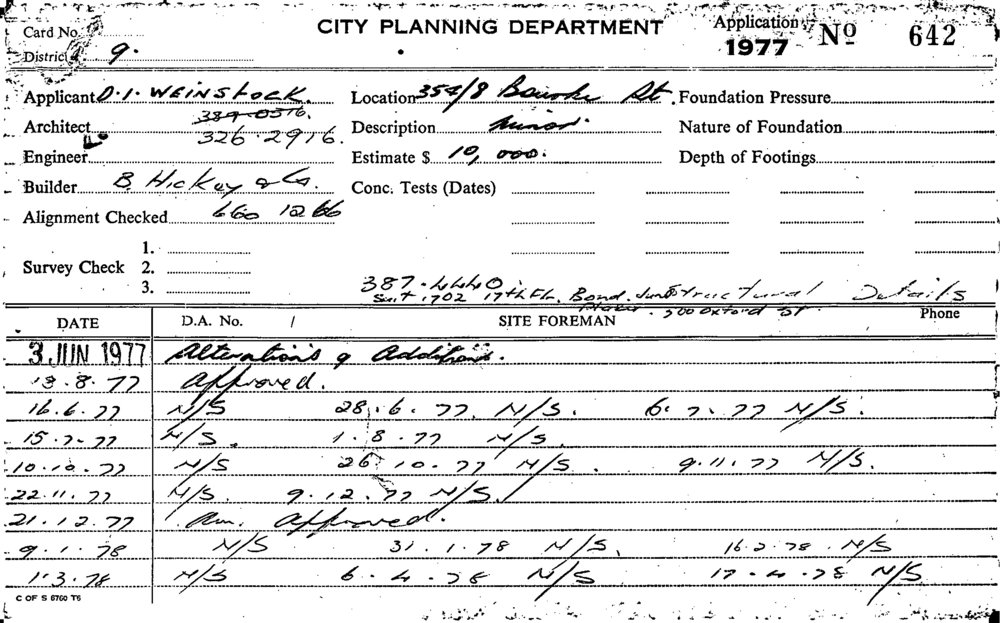 Card No.
CITY PLANNING DEPARTMENT
Application
1977
No 642
District 9.
Applicant D.I. WEINSTOCK.
Location 354/8 Bourke St.
Foundation Pressure
389 0516.
Architect
326.2916.
Description Minor.
Nature of Foundation
Engineer
Estimate $ 10,000.
Depth of Footings
Builder B. Hickey & Co.
Conc. Tests (Dates)
Alignment Checked 660 1266
Survey Check
1.
2.
3.
387.4440.
Suit 1702 17th Flr. Bond. Junct
Structural Details
500 Oxford St.
DATE
D.A. No.
/
SITE FOREMAN
Phone
3 JUN 1977 Alterations & Additions.
13.8.77 Approved.
16.6.77 N/S 28.6.77. N/S. 6.7.77 N/S.
15.7.77 N/S. 1.8.77 N/S.
10.10.77 N/S 26.10.77 N/S. 9.11.77 N/S.
22.11.77 N/S. 9.12.77 N/S.
21.12.77 Am. Approved.
9.1.78 N/S 31.1.78 N/S. 16.2.78. N/S
1.3.78 N/S 6.4.78 N/S 17.4.78 N/S
C OF S 6760 T6